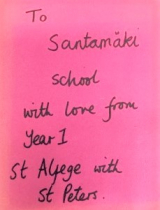 To
Santamäki
school
with love from
Year 1
St Alfege with
St Peters.